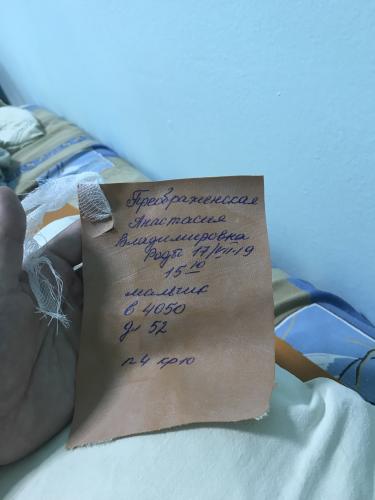 Преображенская
Анастасия
Владимировна
Роды 17/VIII-19
15 10
мальчик
в 4050
дл 52